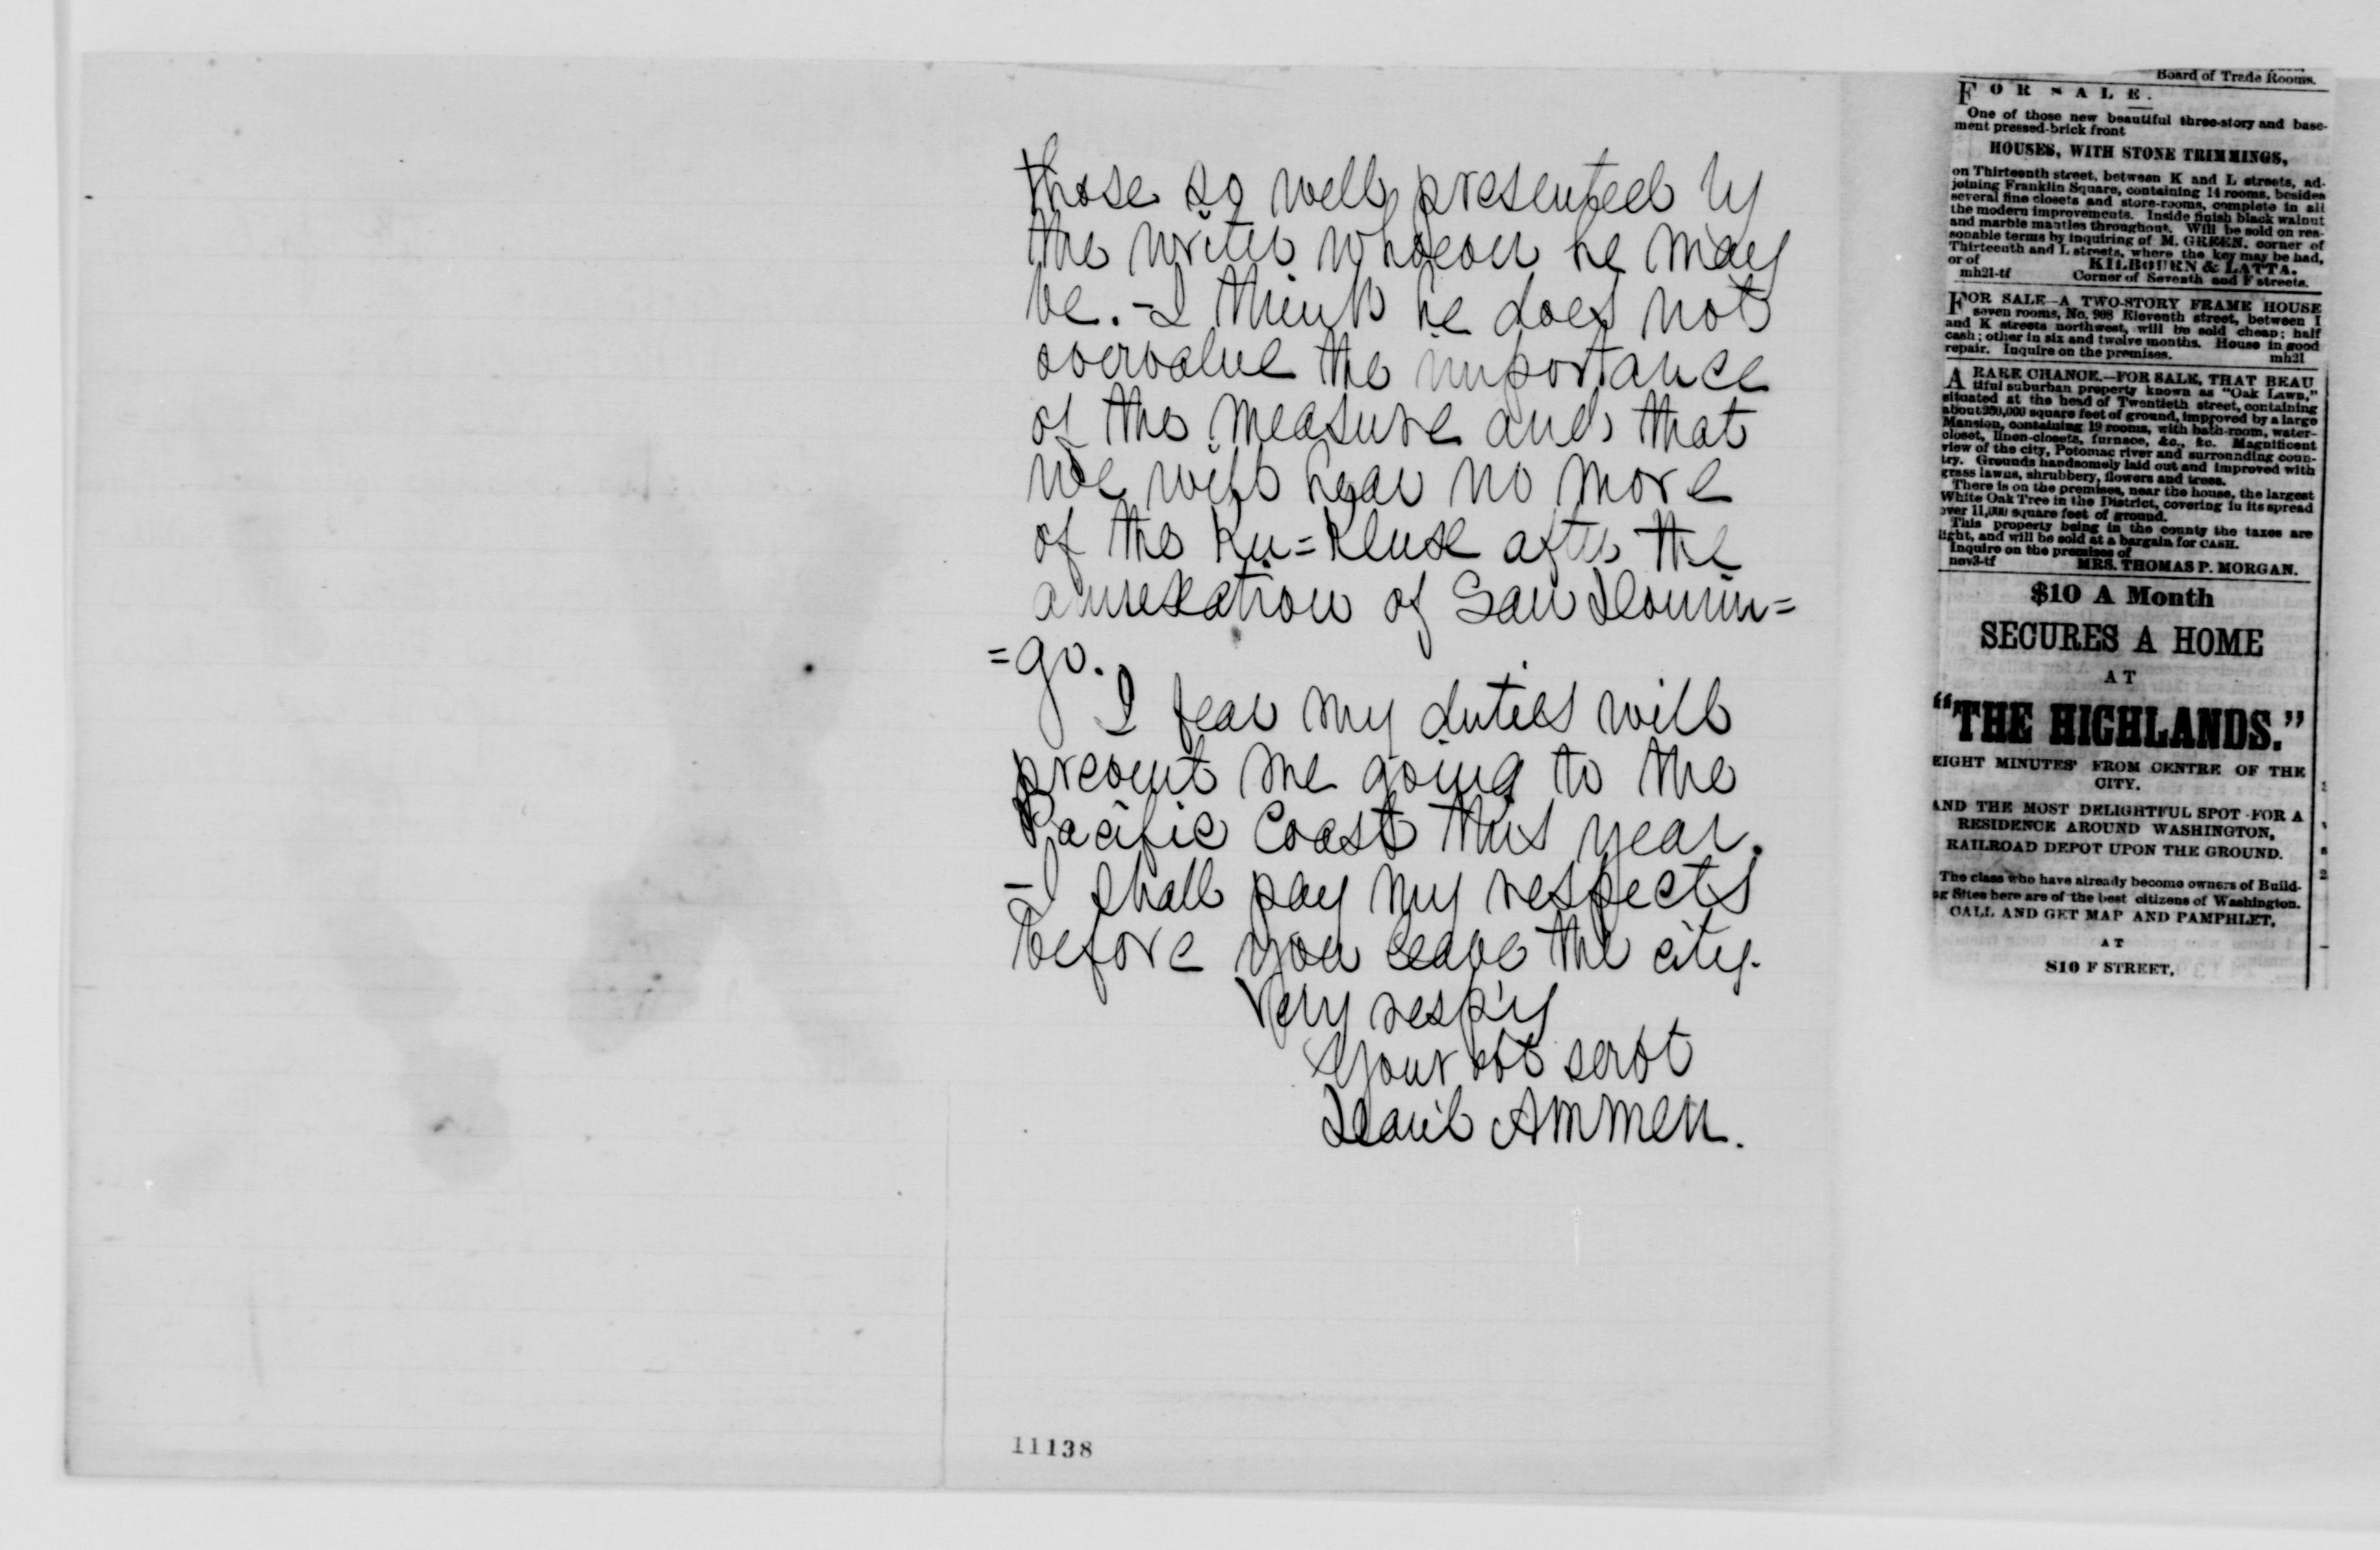 those so well presented by
the writer whoever he may
be. - I think he does not
overvalue the importance
of the measure and that
we will hear no more
of the Ku=Klux after the
annexation of San Domin=
=go.
I fear my duties will
prevent me going to the
Pacific Coast this year.
- I shall pay my respects
before you leave the city.
Very resp'y
Your obt servt
Dan'l Ammen.
11138
Board of Trade Rooms.
FOR SALE.
One of those new beautiful three-story and base-
ment pressed-brick front
HOUSES, WITH STONE TRIMMINGS,
on Thirteenth street, between K and L streets, ad-
joining Franklin Square, containing 14 rooms, besides
several fine closets and store-rooms, complete in all
the modern improvements. Inside finish black walnut
and marble mantles throughout. Will be sold on rea-
sonable terms by inquiring of M. GREEN, corner of
Thirteenth and L streets, where the key may be had,
or of KILBOURN & LATTA.
mh21-tf Corner of Seventh and F streets.
FOR SALE—A TWO-STORY FRAME HOUSE
seven rooms, No. 908 Eleventh street, between I
and K streets northwest, will be sold cheap; half
cash; other in six and twelve months. House in good
repair. Inquire on the premises. mh21
A RARE CHANCE.—FOR SALE, THAT BEAU
tiful suburban property known as "Oak Lawn,"
situated at the head of Twentieth street, containing
about 250,000 square feet of ground, improved by a large
Mansion, containing 19 rooms, with bath-room, water-
closet, linen-closets, furnace, &c., &c. Magnificent
view of the city, Potomac river and surrounding coun-
try. Grounds handsomely laid out and improved with
grass lawns, shrubbery, flowers and trees.
There is on the premises, near the house, the largest
White Oak Tree in the District, covering in its spread
over 11,000 square feet of ground.
This property being in the county the taxes are
light, and will be sold at a bargain for CASH.
Inquire on the premises of
nov3-tf MRS. THOMAS P. MORGAN.
$10 A Month
SECURES A HOME
AT
"THE HIGHLANDS."
EIGHT MINUTES' FROM CENTRE OF THE
CITY.
AND THE MOST DELIGHTFUL SPOT FOR A
RESIDENCE AROUND WASHINGTON,
RAILROAD DEPOT UPON THE GROUND.
The class who have already become owners of Build-
ng Sites here are of the best citizens of Washington.
CALL AND GET MAP AND PAMPHLET,
AT
810 F STREET,